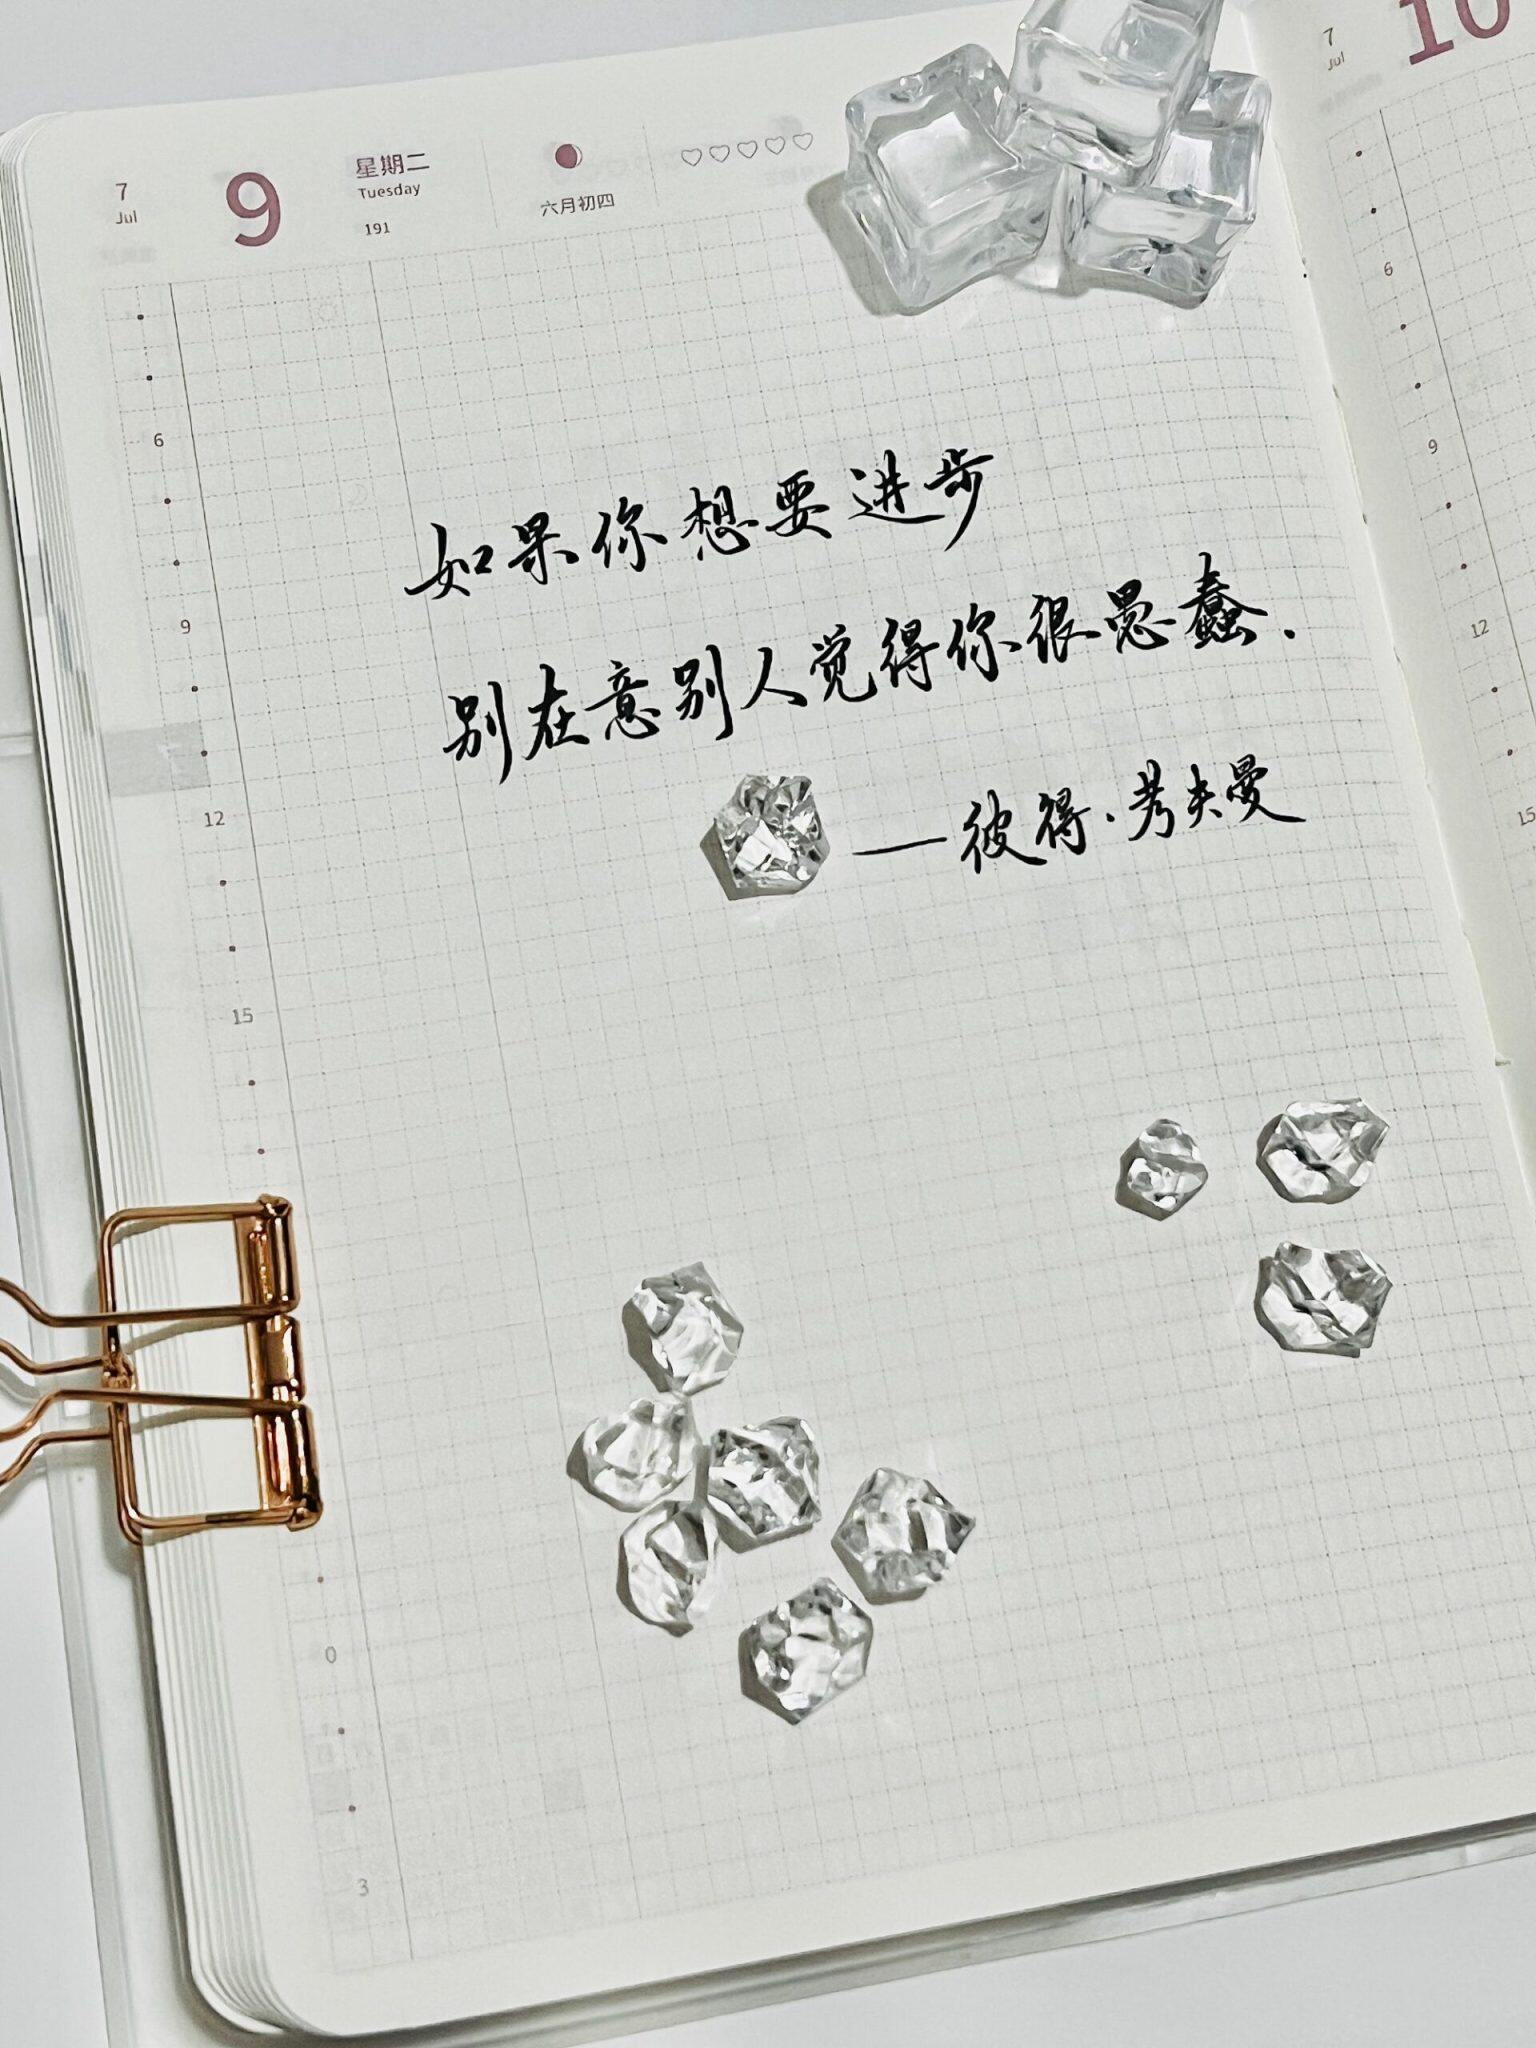 7
Jul
9
星期二
Tuesday
191
六月初四
7
Jul
10
如果你想要进步
别在意别人觉得你很愚蠢.
——彼得·考夫曼
6
9
12
15
0
3
6
9
12
15